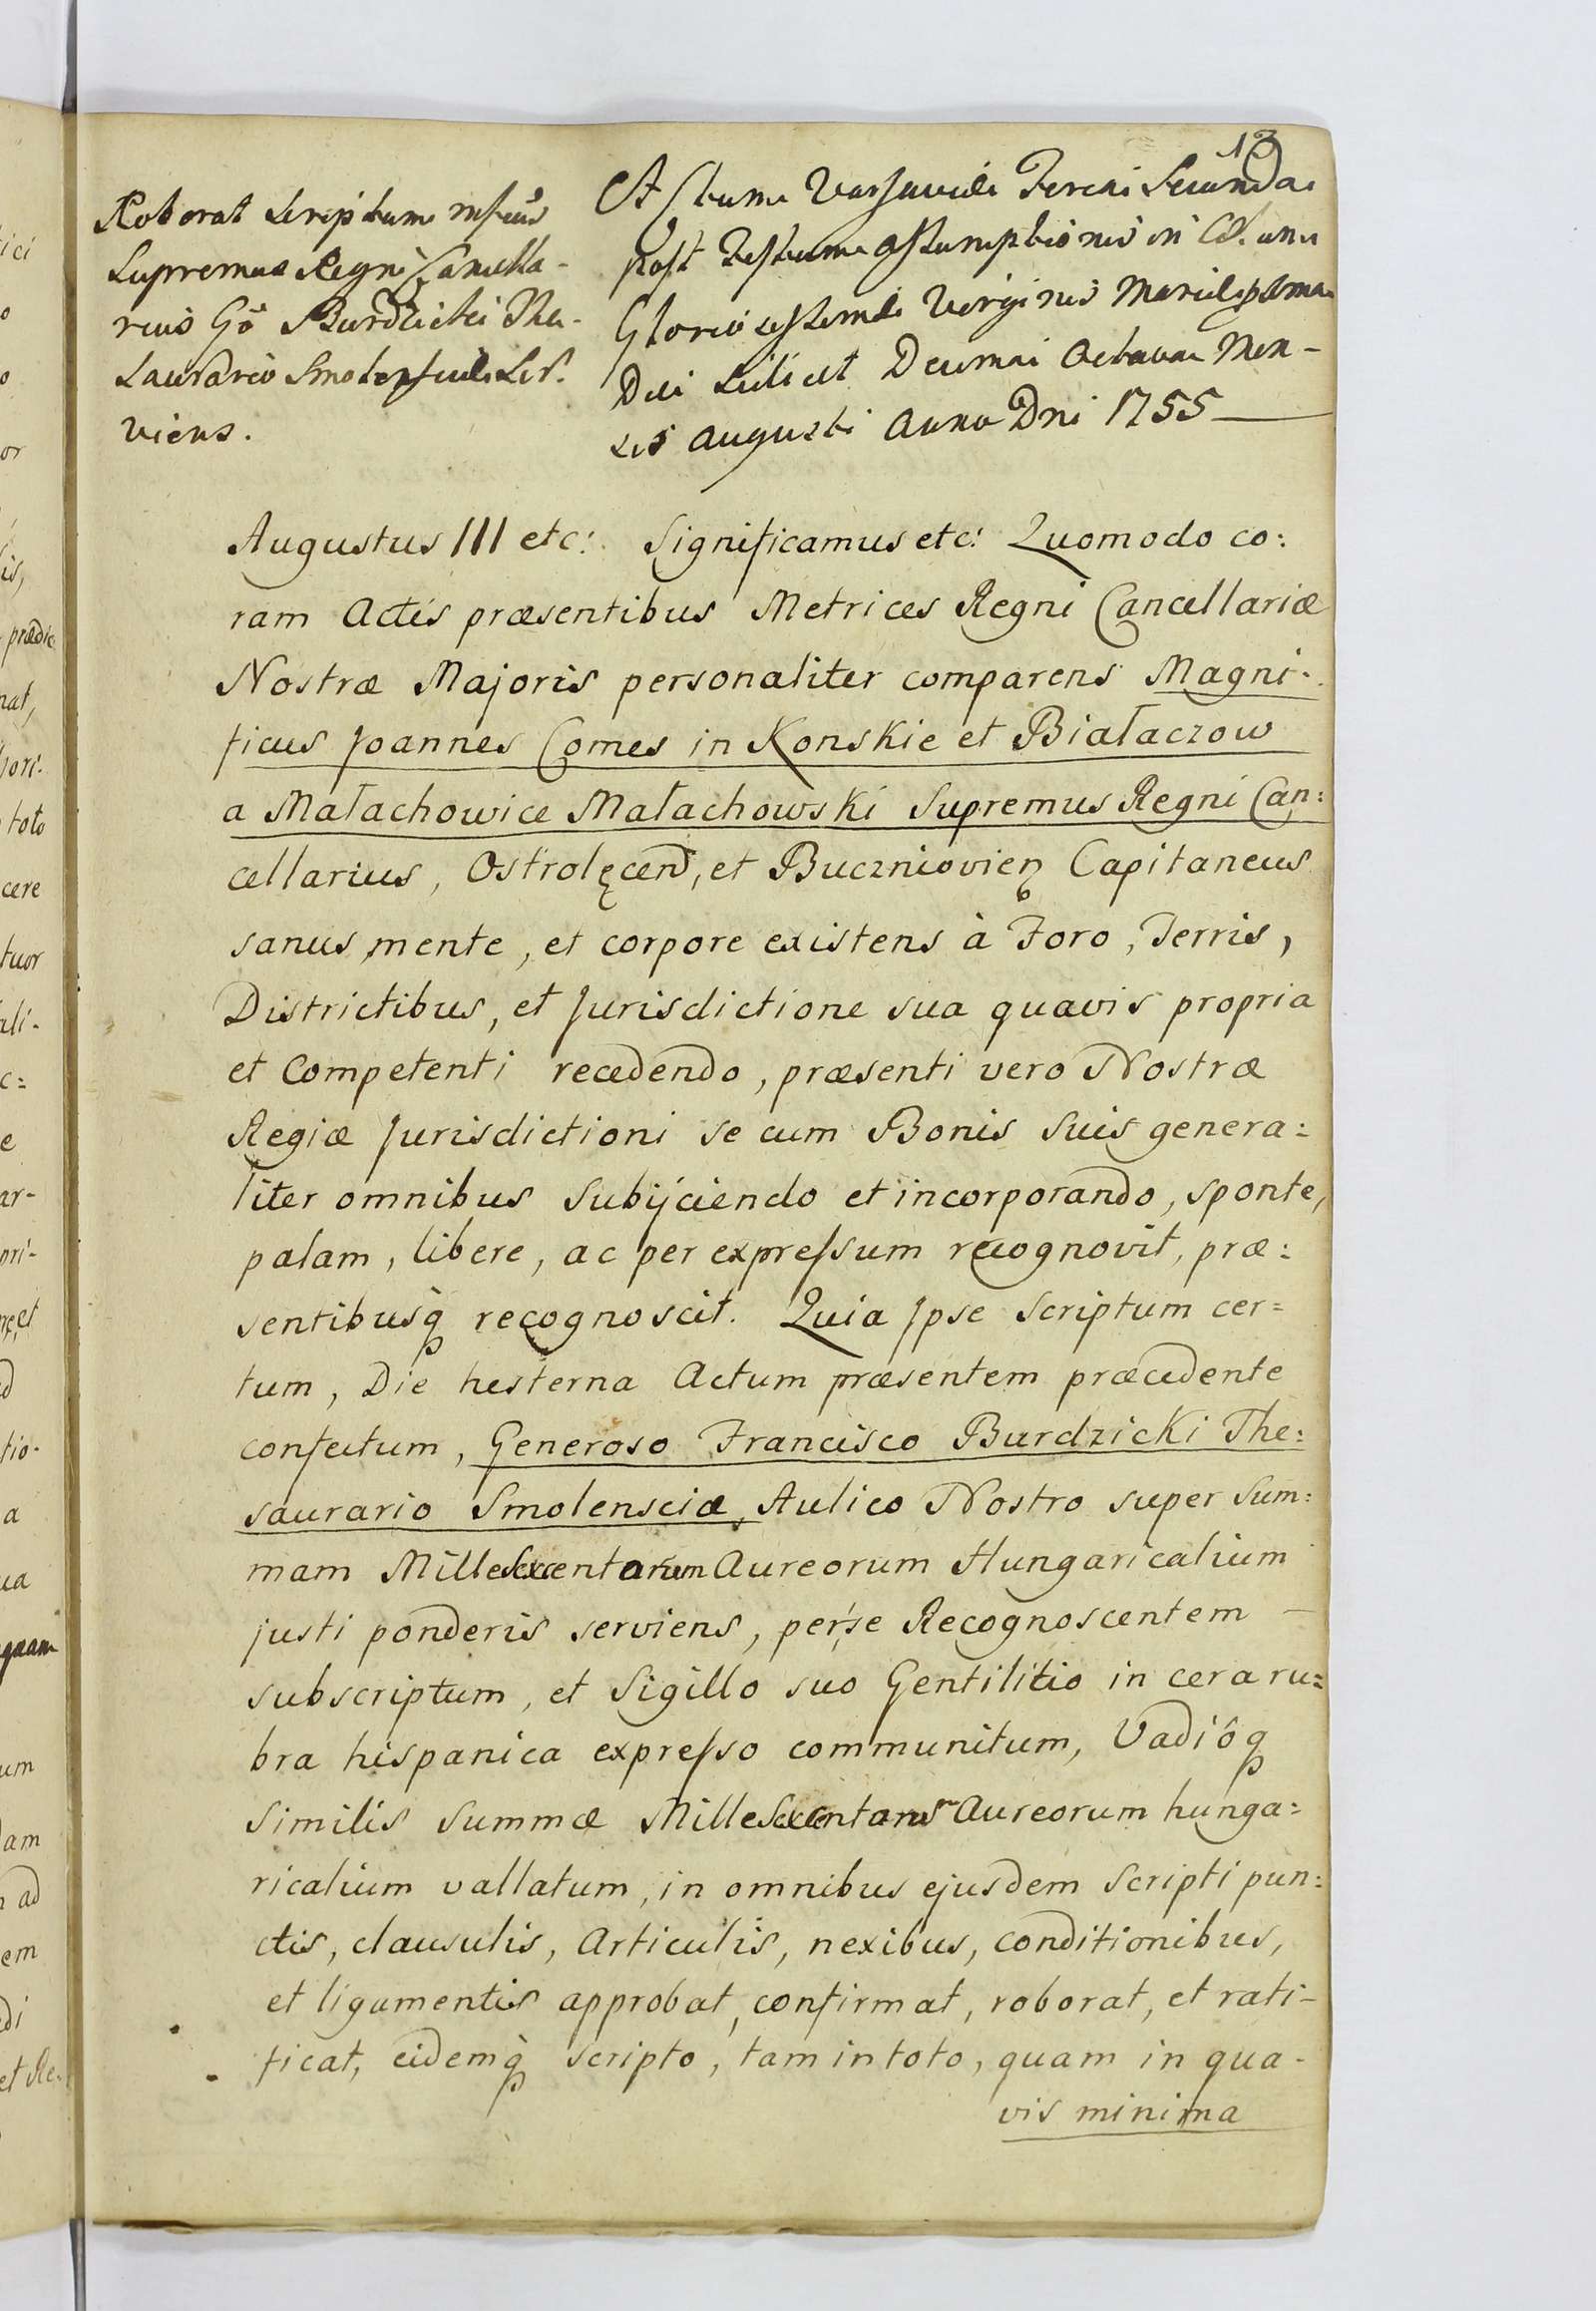 13
Roborat Scriptum Mfcus
Supremus Regni Cancella-
rius Gō Burdzicki The-
saurario Smolensciæ Ser-
viens.
Actum Varsaviæ Feria Secunda
post Festum Assumptionis in Cœlum
Gloriosissimæ Virginis Mariæ
Dei Scilicet Decima Octava Men-
sis Augusti Anno Dni 1755
Augustus III etc: Significamus etc: Quomodo co:
ram Actis præsentibus Metrices Regni Cancellariæ
Nostræ Majoris personaliter comparens Magni-
ficus Joannes Comes in Konskie et Białaczow
a Małachowice Małachowski Supremus Regni Can:
cellarius, Ostrolęcen, et Buczniovien Capitaneus
sanus mente, et corpore existens à Foro, Terris,
Districtibus, et Jurisdictione sua quavis propria
et Competenti recedendo, præsenti vero Nostræ
Regiæ Jurisdictioni se cum Bonis Suis genera:
liter omnibus Subijciendo et incorporando, sponte,
palam, libere, ac per expressum recognovit, præ:
sentibusq recognoscit. Quia Ipse Scriptum cer=
tum, Die hesterna Actum præsentem præcedente
confectum, Generoso Francisco Burdzicki The:
saurario Smolensciæ, Aulico Nostro super Sum:
mam Mille Sexcentarum Aureorum Hungaricalium
justi ponderis serviens, per se Recognoscentem
subscriptum, et Sigillo suo Gentilitio in cera ru=
bra hispanica expresso communitum, Vadiôq
Similis Summæ Mille Sexcentarum Aureorum hunga=
ricalium vallatum, in omnibus ejusdem Scripti pun:
ctis, clausulis, Articulis, nexibus, conditionibus,
et ligamentis approbat, confirmat, roborat, et rati-
ficat, eidemq scripto, tam in toto, quam in qua-
vis minima